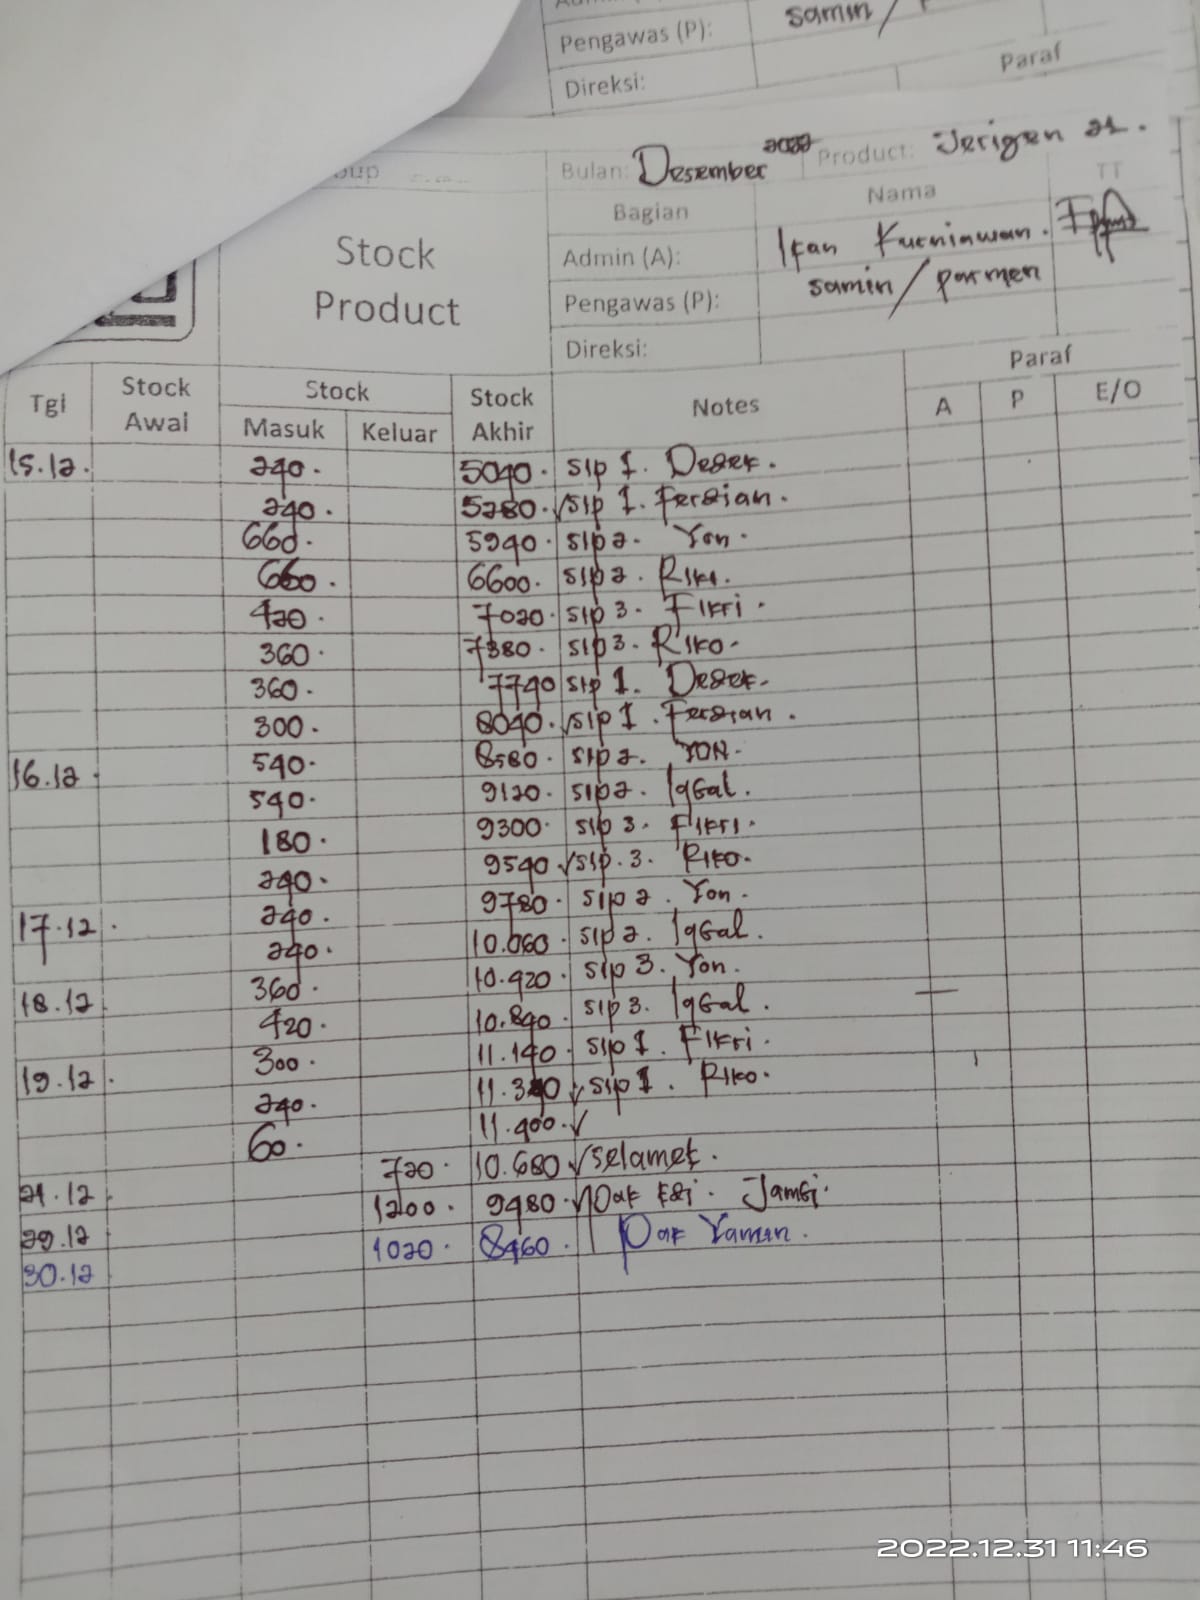 samin /
Pengawas (P):
Direksi:
Paraf
oup
Bulan: Desember 2022 Product: Jerigen 21.
Bagian Nama TT
Stock
Product
Admin (A): Ifan Kurniawan.
Pengawas (P): samin / parmen
Direksi:
Tgl Stock Awal Stock Masuk Keluar Stock Akhir Notes Paraf A P E/O
15.12. 240. 5040. Sip 1. Desek.
240. 5280. √ Sip 1. Fersian.
660. 5940. Sip 2. Yon.
660. 6600. Sip 2. Riki.
420. 7020. Sip 3. Fikri.
360. 7380. Sip 3. Riko.
360. 7740 Sip 1. Desek.
300. 8040. √ Sip 1. Fersian.
16.12. 540. 8580. Sip 2. YON.
540. 9120. Sip 2. Iqbal.
180. 9300. Sip 3. Fikri.
240. 9540 √ Sip. 3. Riko.
17.12. 240. 9780. Sip 2. Yon.
240. 10.060. Sip 2. Iqbal.
18.12. 360. 10.420. Sip 3. Yon.
420. 10.840. Sip 3. Iqbal.
19.12. 300. 11.140. Sip 1. Fikri.
240. 11.340 √ Sip 1. Riko.
60. 11.400. √
21.12 720. 10.680 √ selamet.
29.12 1200. 9480. √ Pak Edi. Jambi.
30.12 1020. 8460. Pak Yaman.
2022.12.31 11:46